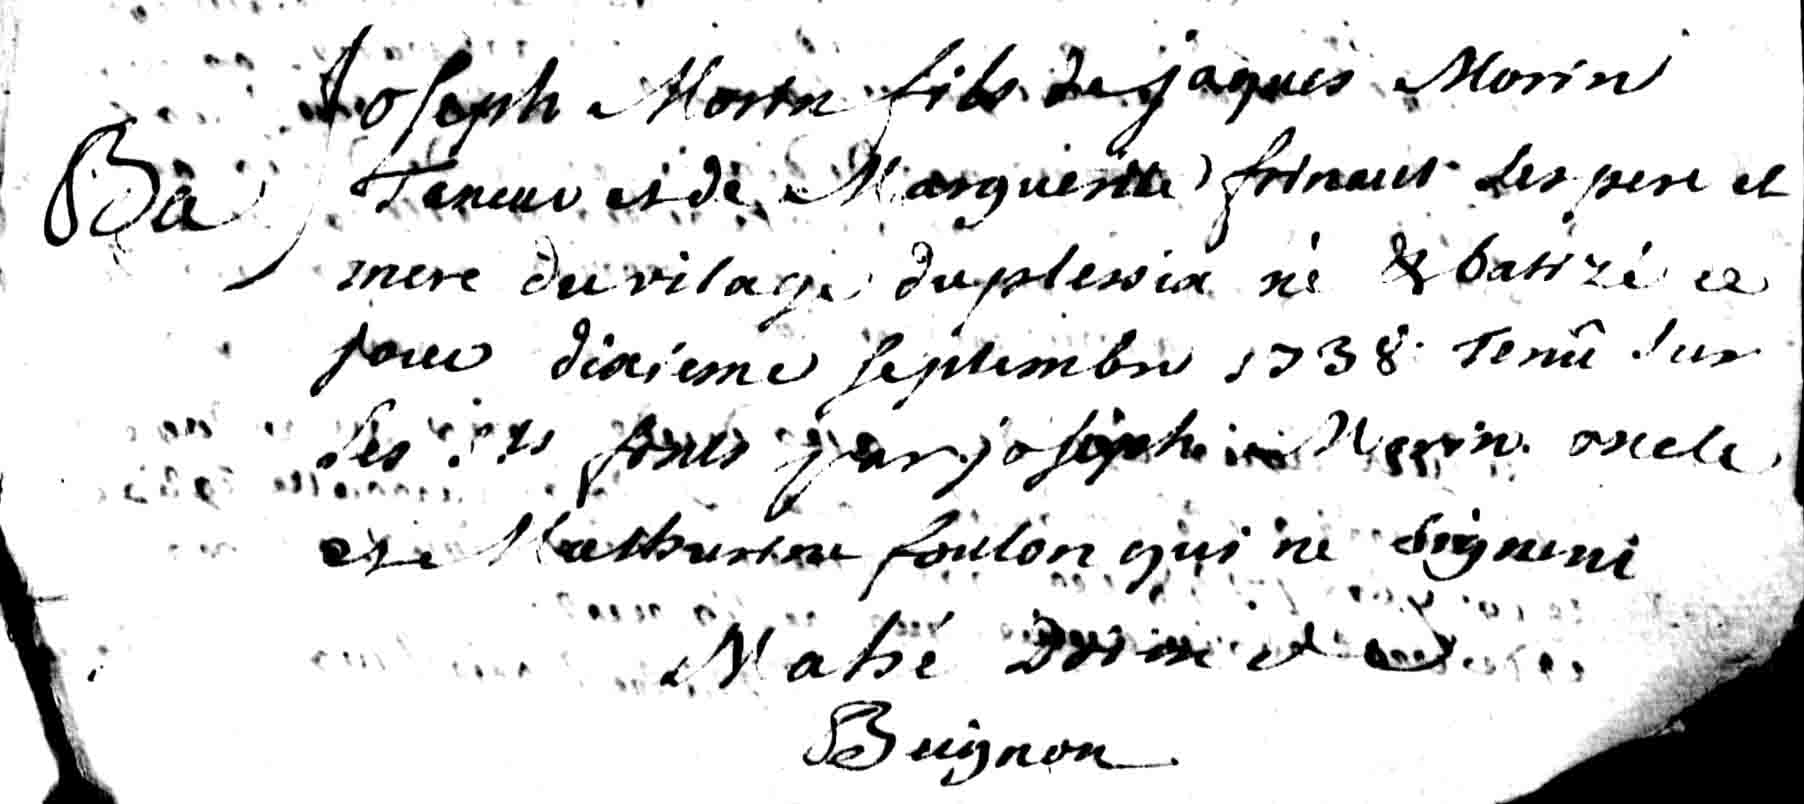 Joseph Morin fils de jaques Morin
Ba
Taneur et de Marguerite frinaut Ses pere et
mere du vilage duplessix né & batizé ce
jour dixieme septembre 1738 Tenû sur
les sts fonts par joseph Morin oncle
et Mathurine foulon qui ne signent
Mahé Prieur de
Beignon